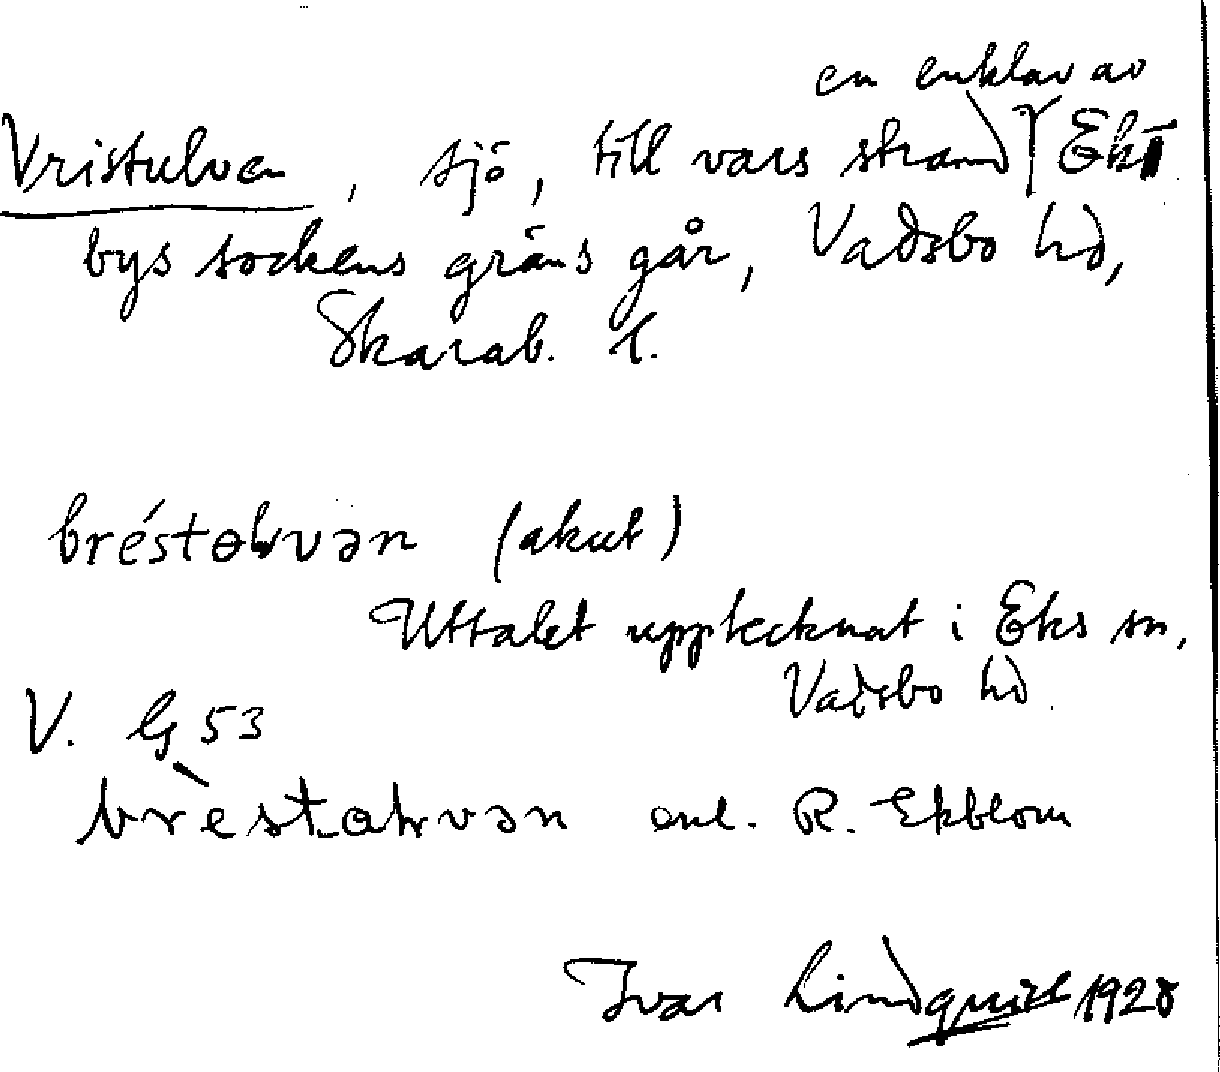 en enklav av
Vristulven, sjö, till vars strand Γ Ek-
bys sockens gräns går, Vadsbo hd,
Skarab. l.
bréstɵɫvən (akut)
Uttalet upptecknat i Eks sn,
Vadsbo hd.
V. G 53
brèstaɫvən enl. R. Ekblom
Ivar Lindquist 1928